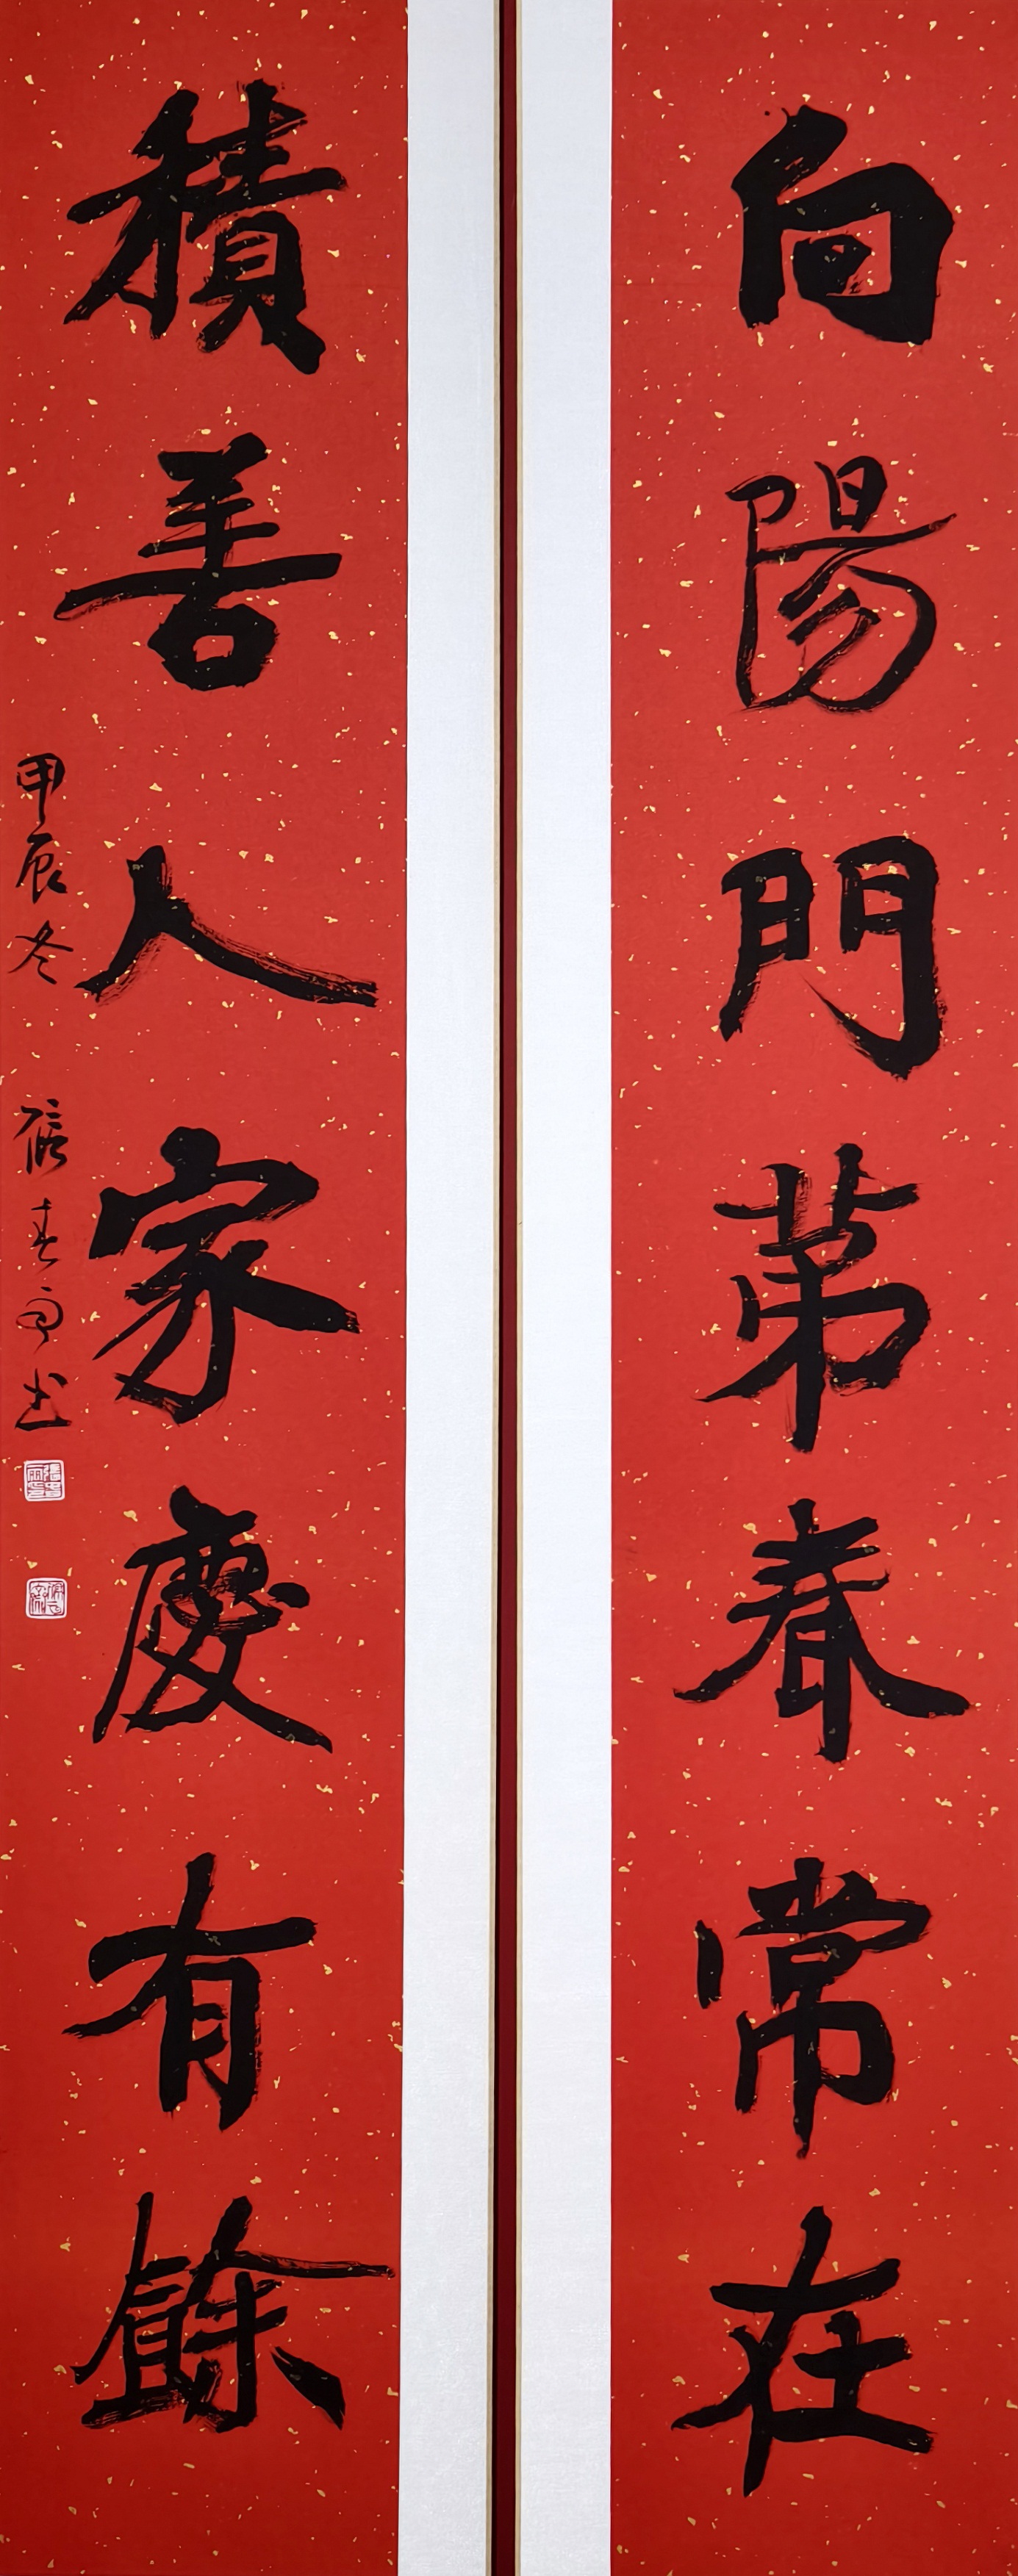 向陽門苐春常在
積善人家慶有餘
甲辰冬